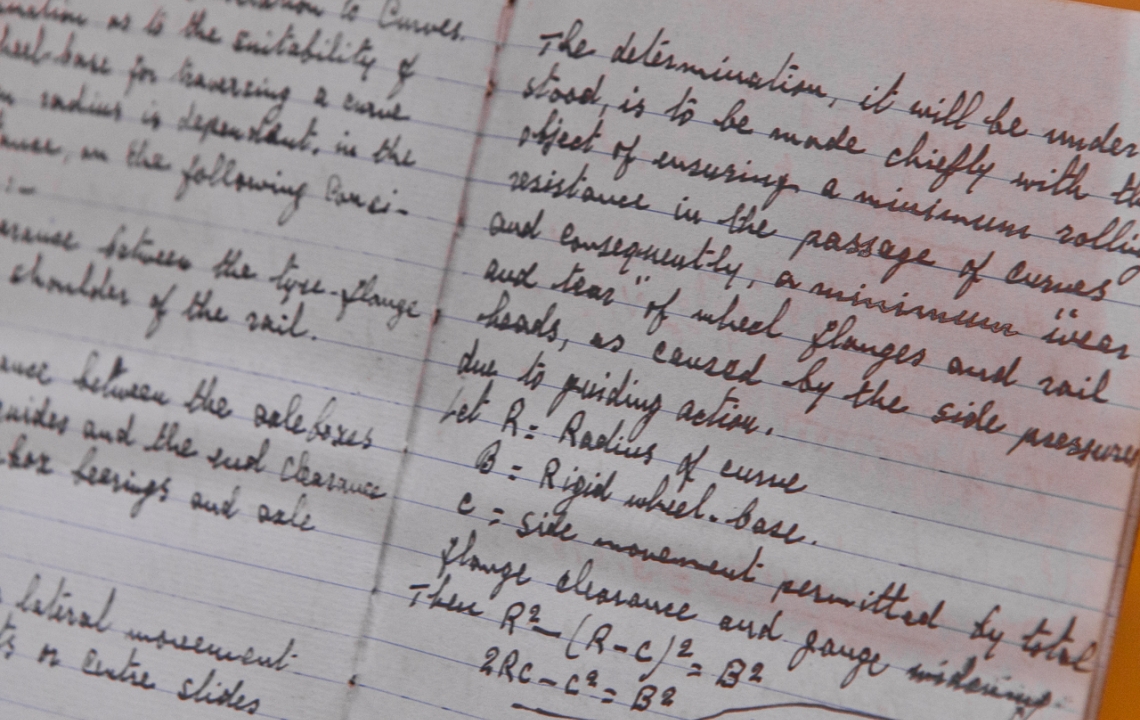 to Curves.
as to the suitability of
base for traversing a curve
radius is dependent, in the
on the following Consi-
:-
between the tyre-flange
shoulder of the rail.
between the axleboxes
guides and the end clearance
box bearings and axle
lateral movement
or centre slides
The determination, it will be under
stood, is to be made chiefly with
object of ensuring a minimum rolling
resistance in the passage of curves
and consequently, a minimum "wear
and tear" of wheel flanges and rail
heads, as caused by the side pressures
due to guiding action.
Let R = Radius of curve
B = Rigid wheel-base.
c = side movement permitted by total
flange clearance and gauge widening.
Then R² - (R-c)² = B²
2Rc - c² = B²